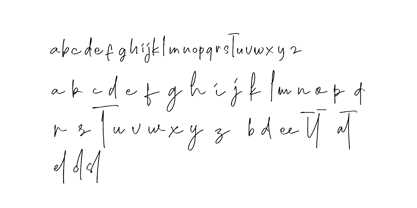 abcdefghijklmnopqrstuvwxyz
a b c d e f g h i j k l m n o p q
r s t u v w x y z b d ee